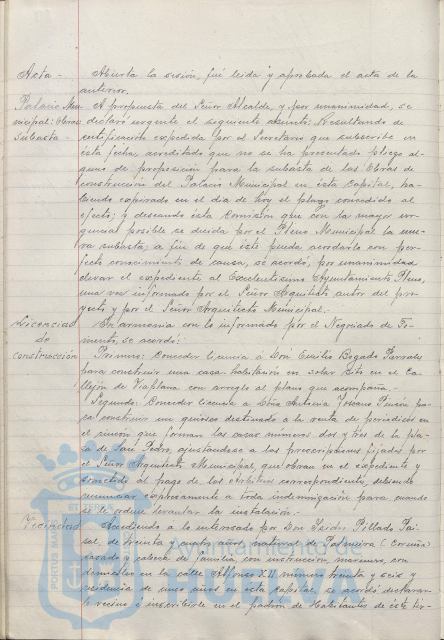 Acta – Abierta la sesión, fué leida y aprobada el acta de la
anterior.
Palacio Mu- A propuesta del Señor Alcalde, y por unanimidad, se
nicipal: Obras declaró urgente el siguiente asunto: Resultando de
Subasta – certificación expedida por el Secretario que subscribe en
esta fecha, acreditado que no se ha presentado pliego al-
guno de proposición para la subasta de las Obras de
construcción del Palacio Municipal en esta Capital, ha-
biendo expirado en el dia de hoy el plazo concedido al
efecto; y deseando esta Comisión que con la mayor ur-
gencia posible se decida por el Pleno Municipal la nue-
va subasta; a fin de que éste pueda acordarla con per-
fecto conocimiento de causa, se acordó, por unanimidad
elevar el expediente al Excelentisimo Ayuntamiento Pleno,
una vez informado por el Señor Arquitecto autor del pro-
yecto y por el Señor Arquitecto Municipal.
Licencias En armonia con lo informado por el Negociado de Fo-
de mento, se acordó:
construcción Primero: Conceder licencia a Don Emilio Bogado Parrales
para construir una casa-habitación en solar sito en el Ca-
llejón de Viaplana con arreglo al plano que acompaña.
Segundo: Conceder licencia a Doña Antonia Toscano pa-
ra construir un quiosco destinado a la venta de periodicos en
el rincón que forman las casas números dos y tres de la pla-
za de San Pedro, ajustandose a las prescripciones fijadas por
el Señor Arquitecto Municipal, que obran en el expediente y
sometida al pago de los Arbitrios correspondientes, debiendo
renunciar expresamente a toda indemnización para cuando
se le ordene levantar la instalación.
Vecindad Accediendo a lo interesado por Don Isidro Pillado Pai-
sal, de treinta y cuatro años, natural de Palmeira (Coruña)
casado y cabeza de familia, con instrucción, marinero, con
domicilio en la calle Alfonso XII número treinta y seis y
residencia de unos años en esta capital, se acordó declarar-
le vecino é inscribirle en el padrón de Habitantes de este tér-
Ayuntamiento de
HUELVA
PORTUS MARIS